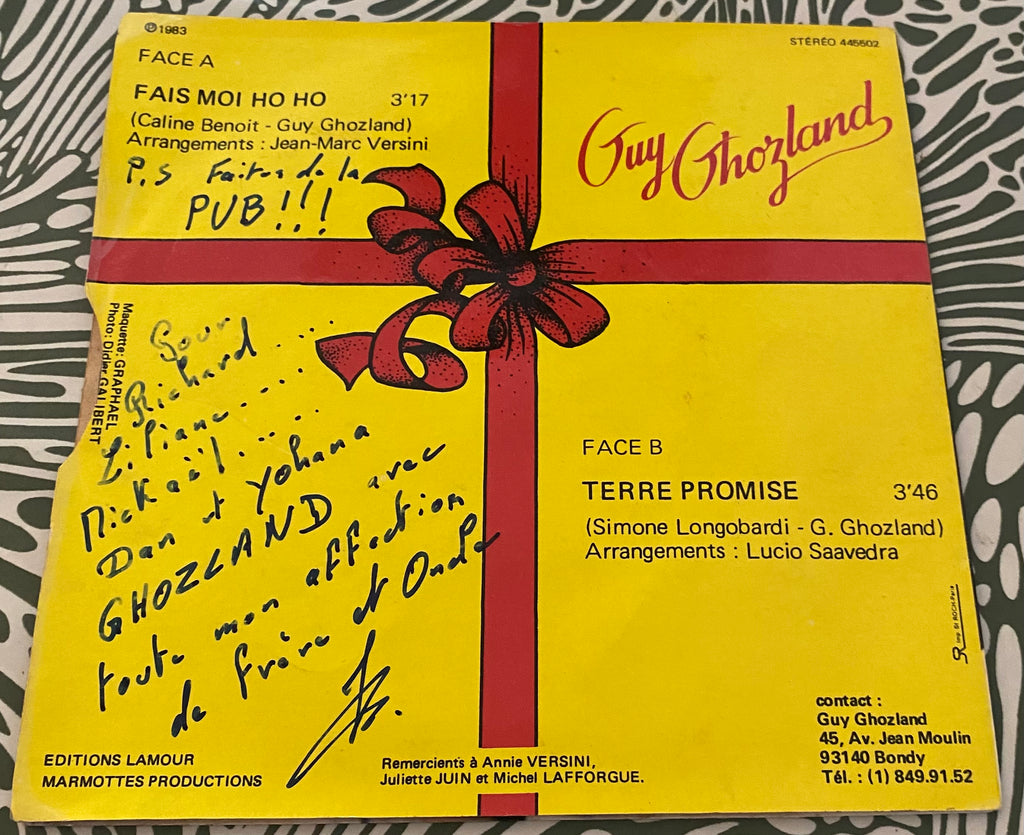 ℗1983
FACE A
FAIS MOI HO HO 3'17
(Caline Benoit - Guy Ghozland)
Arrangements : Jean-Marc Versini
P.S Faites de la
PUB!!!
STÉRÉO 445502
Guy Ghozland
Maquette: GRAPHAEL
Photo: Didier GALIBERT
Pour
Richard....
Liliane....
Mickaël....
Dan et Yohana
GHOZLAND avec
toute mon affection
de frère et Oncle
FACE B
TERRE PROMISE 3'46
(Simone Longobardi - G. Ghozland)
Arrangements : Lucio Saavedra
EDITIONS LAMOUR
MARMOTTES PRODUCTIONS
Remercients à Annie VERSINI,
Juliette JUIN et Michel LAFFORGUE.
contact :
Guy Ghozland
45, Av. Jean Moulin
93140 Bondy
Tél. : (1) 849.91.52